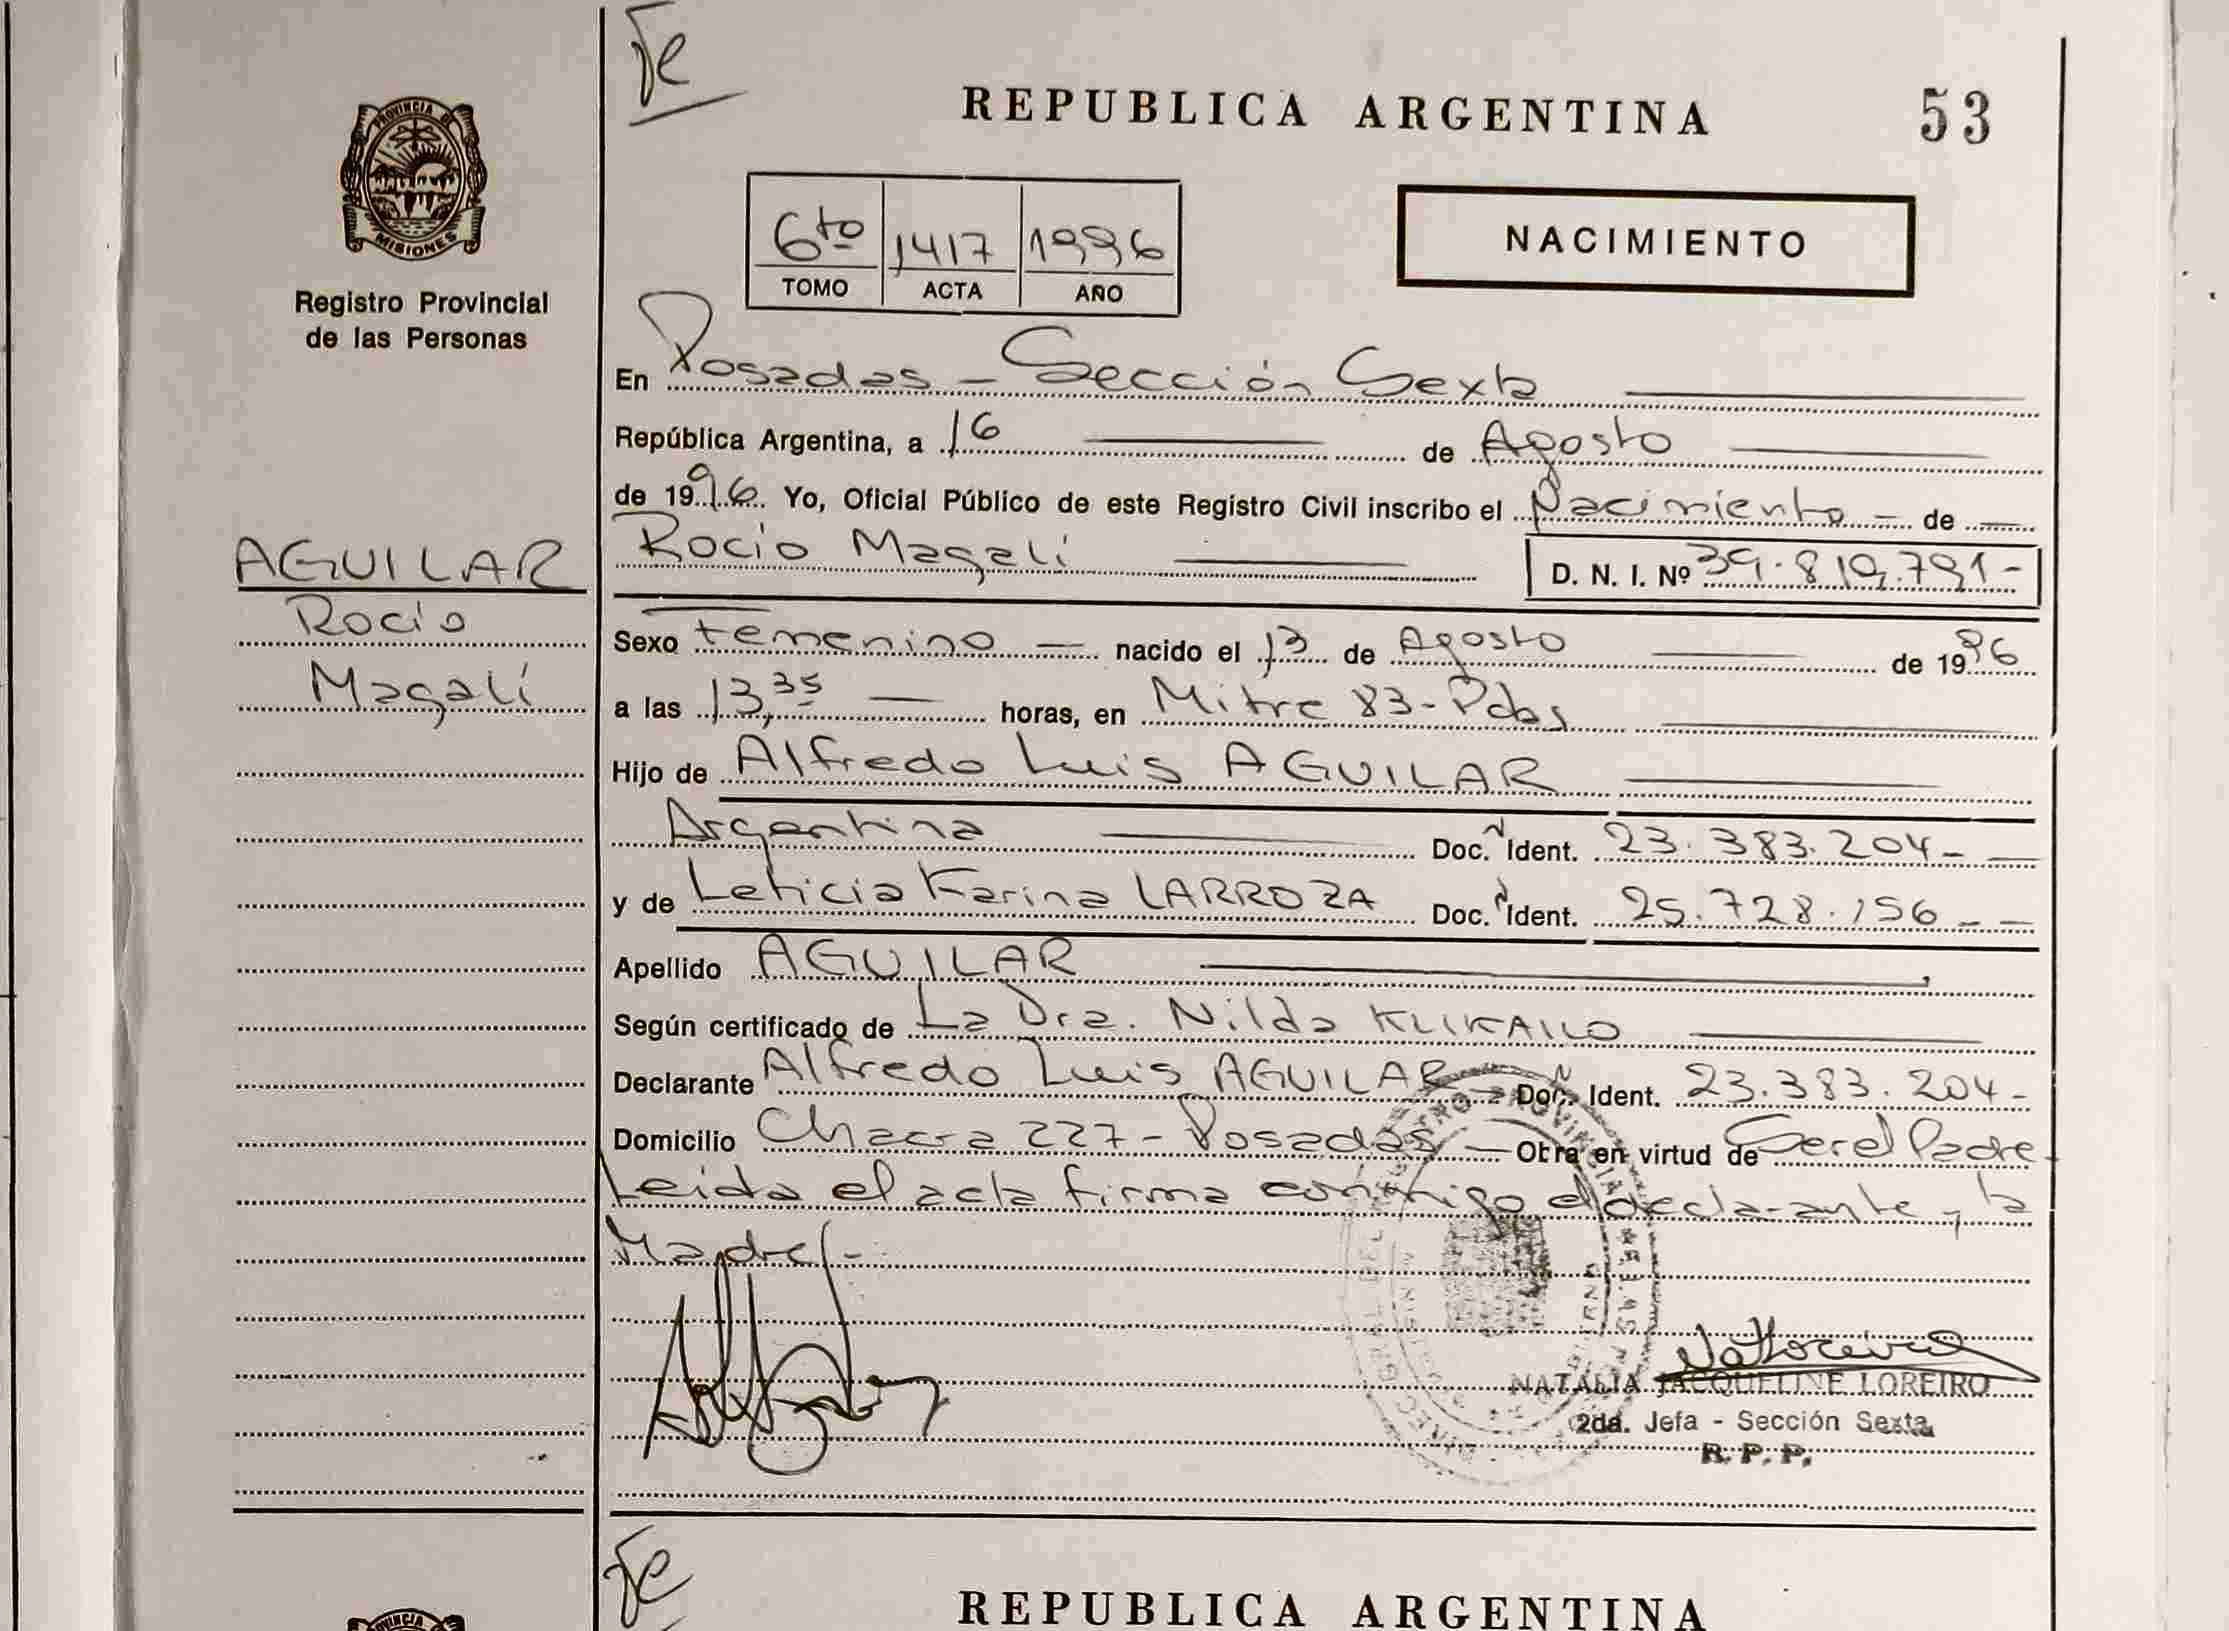 Te
REPUBLICA ARGENTINA
53
PROVINCIA DE
MISIONES
Registro Provincial
de las Personas
6to 1417 1996
TOMO ACTA AÑO
NACIMIENTO
En Posadas - Sección Sexta
República Argentina, a 16 de Agosto
de 1996 Yo, Oficial Público de este Registro Civil inscribo el Nacimiento - de -
Rocio Magalí
D. N. I. Nº 39.819.791-
AGUILAR
Rocio
Magalí
Sexo Femenino - nacido el 13 de Agosto de 1996
a las 13,35 horas, en Mitre 83 - Pdas
Hijo de Alfredo Luis AGUILAR
Argentina Doc. N Ident. 23.383.204-
y de Leticia Karina LARROZA Doc. N Ident. 25.728.156 - -
Apellido AGUILAR
Según certificado de La Dra. Nilda KLIKAILO
Declarante Alfredo Luis AGUILAR - Doc. N Ident. 23.383.204-
Domicilio Chacra 227 - Posadas - Obra en virtud de Ser el Padre
Leida el acta firma conmigo el declarante y la
Madre/-
NATALIA JACQUELINE LOREIRO
2da. Jefa - Sección Sexta
R. P. P.
Te
REPUBLICA ARGENTINA
PROVINCIA